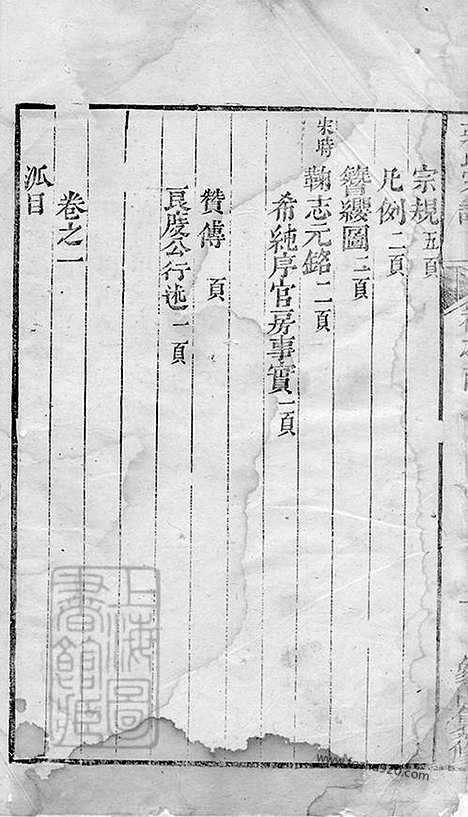 宗規五頁
凡例二頁
簪纓圖三頁
宋時鞠志元銘二頁
希純序官房事實一頁
贊傳 頁
良度公行述一頁
卷之一
派目
上海圖書館藏